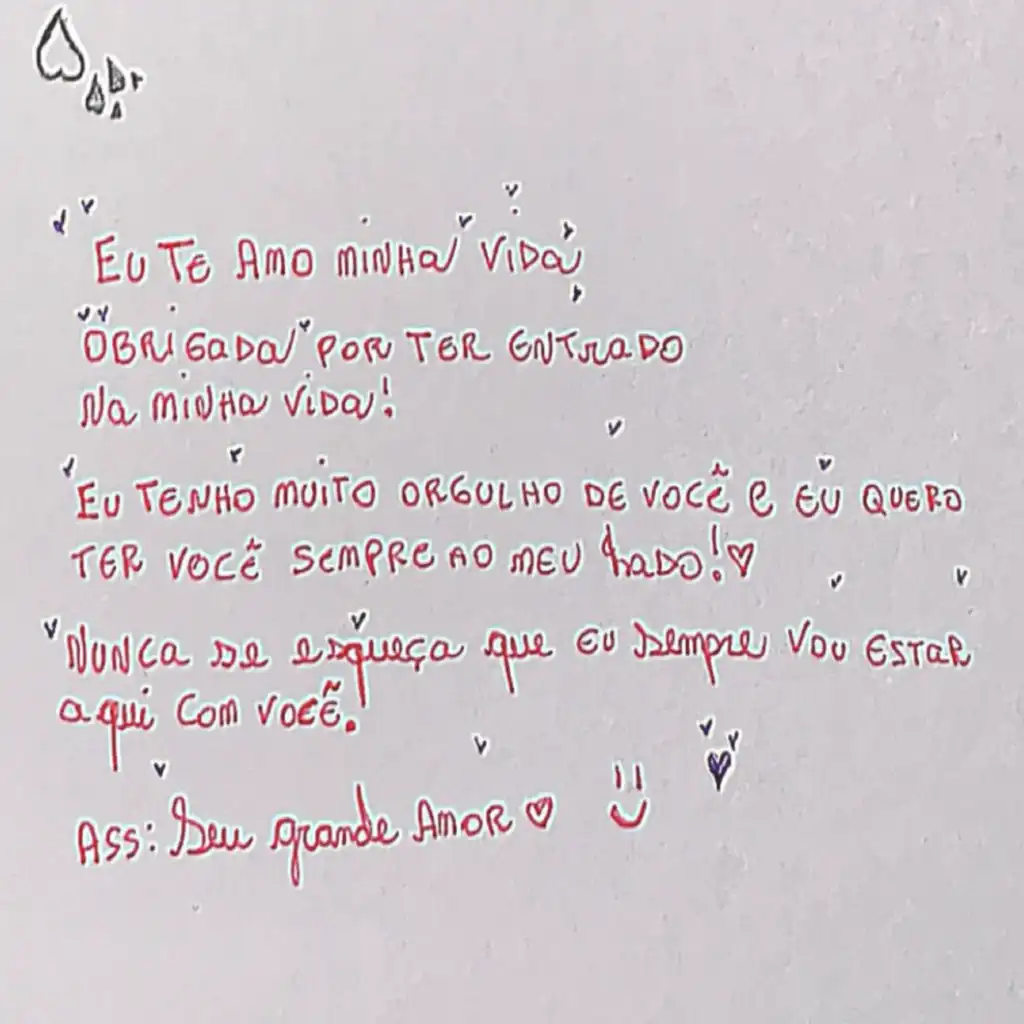 Eu te amo minha vida
Obrigada por ter entrado
na minha vida!
Eu tenho muito orgulho de você e eu quero
ter você sempre ao meu lado!♡
Nunca se esqueça que eu sempre vou estar
aqui com você.
Ass: Seu grande Amor ♡